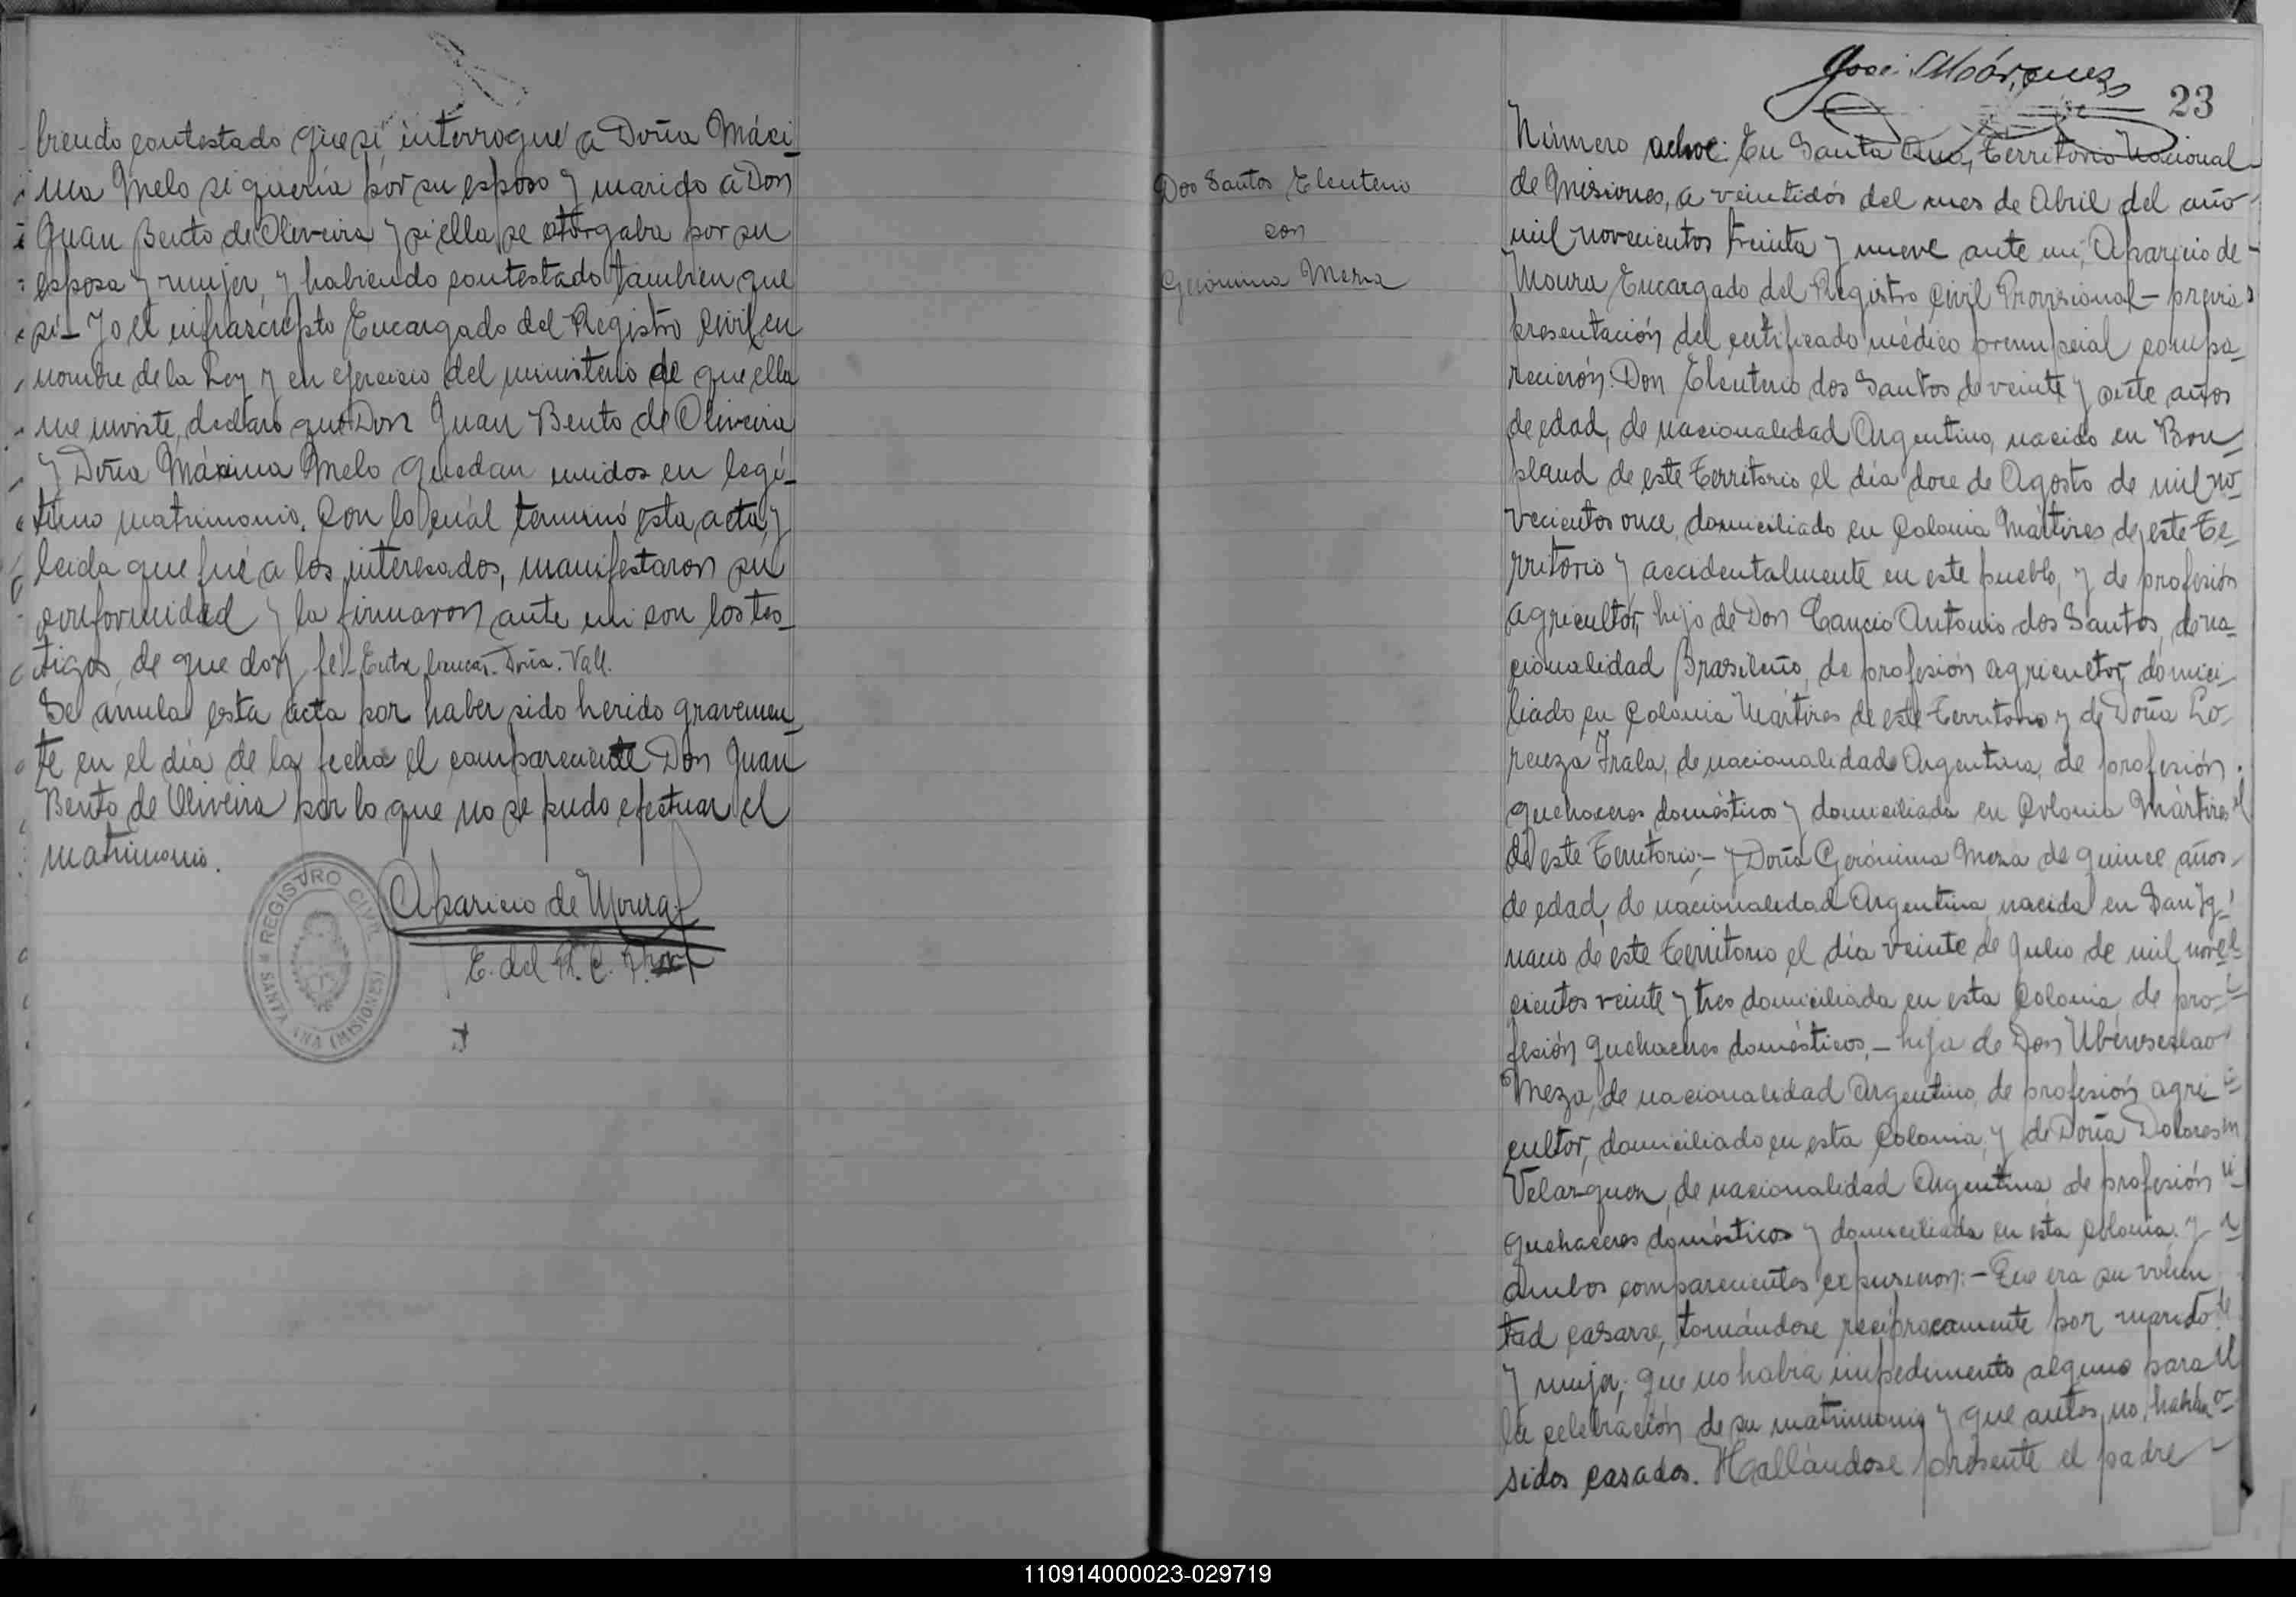 biendo contestado que si, interrogué a Doña Máxi-
ma Melo si quería por su esposo y marido a Don
Juan Bento de Oliveira y si ella se otorgaba por su
esposa y mujer, y habiendo contestado tambien que
si- Yo el infrascripto Encargado del Registro Civil en
nombre de la Ley y en ejercicio del ministerio de que ella
me inviste, declaro que Don Juan Bento de Oliveira
y Doña Máxima Melo quedan unidos en legí-
timo matrimonio. Con lo cuál terminó esta acta, y
leida que fué a los interesados, manifestaron su
conformidad y la firmaron ante mi con los tes-
tigos, de que doy fé.- Doña. Vall.
Se anula esta acta por haber sido herido gravemen-
te en el día de la fecha el compareciente Don Juan
Bento de Oliveira por lo que no se pudo efectuar el
matrimonio.
Aparicio de Moura
E. del R. C.
REGISTRO CIVIL
SANTA ANA (MISIONES)
Dos Santos Eleuterio
con
Gerónima Meza
José Márquez
23
Número ochoc: En Santa Ana, Territorio Nacional
de Misiones, a veintidós del mes de Abril del año
mil novecientos treinta y nueve ante mi, Aparicio de
Moura Encargado del Registro Civil Provisional- previa
presentación del certificado médico prenupcial compa-
recieron: Don Eleuterio dos Santos de veinte y siete años
de edad, de nacionalidad Argentino, nacido en Bon-
pland de este Territorio el día doce de Agosto de mil no-
vecientos once, domiciliado en Colonia Mártires de este Te-
rritorio y accidentalmente en este pueblo, y de profesión
agricultor, hijo de Don Cancio Antonio dos Santos, de na-
cionalidad Brasileño, de profesión agricultor, domici-
liado en Colonia Mártires de este Territorio y de Doña Lo-
renza Irala, de nacionalidad Argentina, de profesión
quehaceres domésticos y domiciliada en Colonia Mártires
de este Territorio;- y Doña Gerónima Meza de quince años
de edad, de nacionalidad Argentina, nacida en San Ig-
nacio de este Territorio el día veinte de Julio de mil nove-
cientos veinte y tres domiciliada en esta Colonia, de pro-
fesión quehaceres domésticos,- hija de Don Ubenseslao
Meza, de nacionalidad Argentino, de profesión agri-
cultor, domiciliado en esta Colonia, y de Doña Dolores
Velazquez, de nacionalidad Argentina, de profesión
quehaceres domésticos y domiciliada en esta Colonia. y
ambos comparecientes expusieron:- Que era su volun
tad casarse, tomándose recíprocamente por marido
y mujer; que no había impedimento alguno para
la celebración de su matrimonio y que antes no habían
sidos casados. Hallándose presente el padre
110914000023-029719